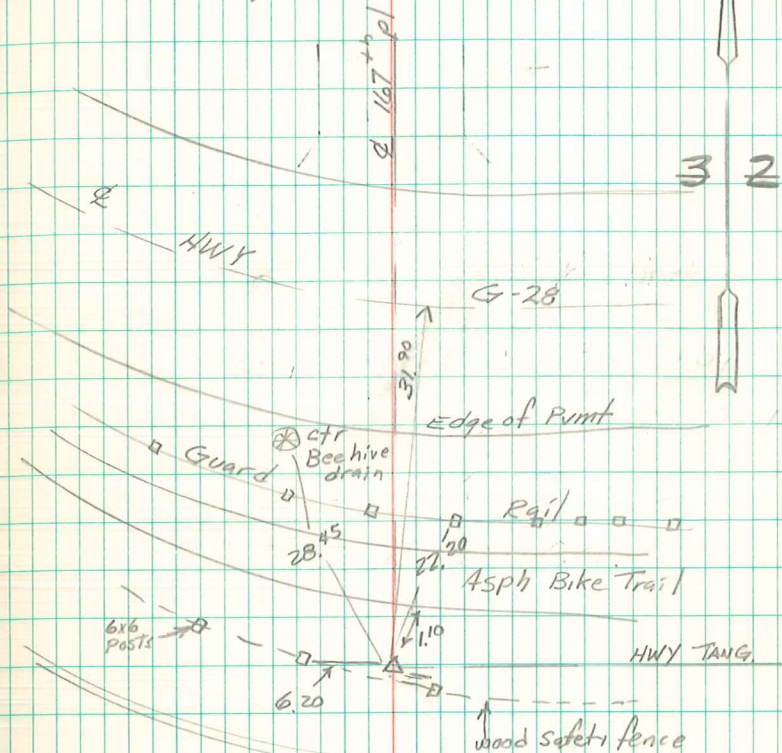 ℄ 167th pl
3 2
℄ HWY
G-28
31.90
Edge of Pvmt
ctr
Beehive
drain
Guard Rail
28.45
22.20
Asph Bike Trail
6x6
Posts
1.10
HWY TANG.
6.20
wood safety fence